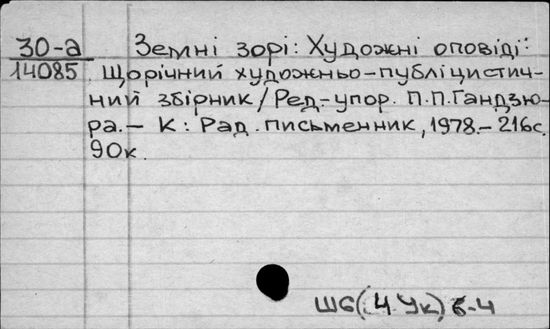 30-а Земні зорі: Художні оповіді:
14085 Щорічний художньо-публіцистич-
ний збірник / Ред.-упор. П.П.Гандзю-
ра.— К: Рад. письменник, 1978.— 216с.
90к.
Ш6(4Ук)6-4